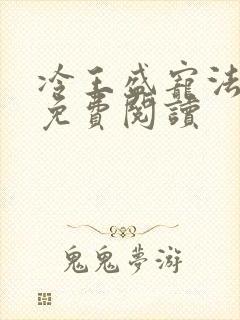 冷王盛寵法
免費閱讀
鬼鬼夢游